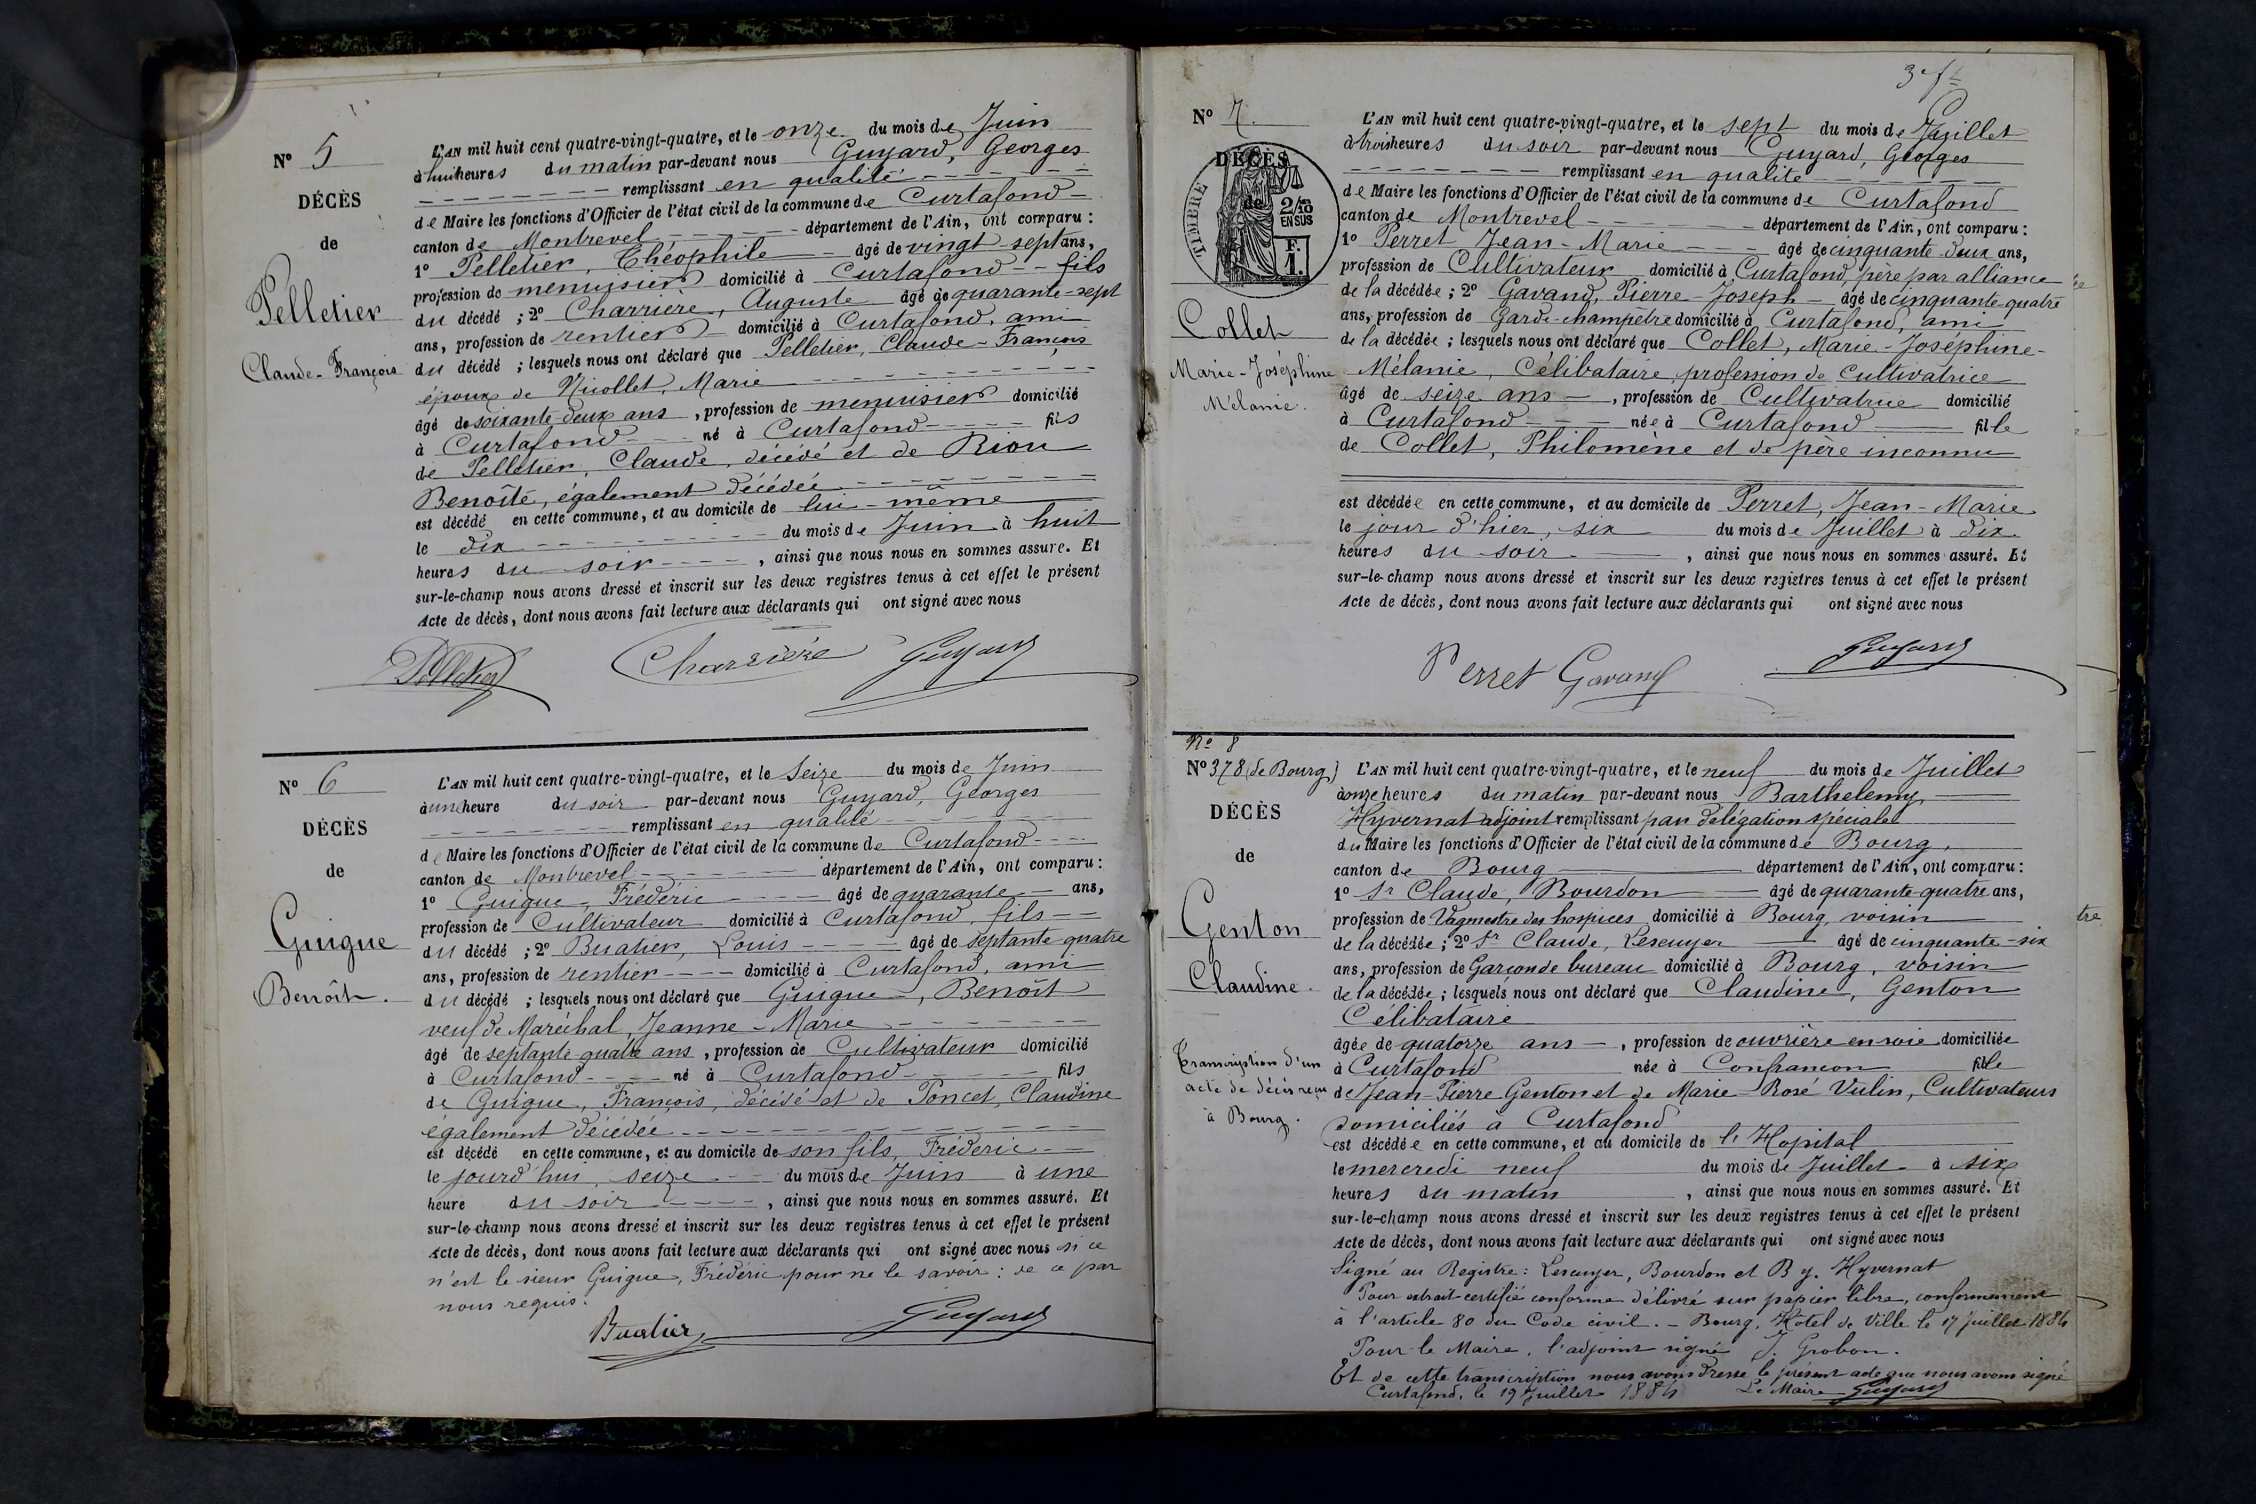 N° 5
DÉCÈS
de
Pelletier
Claude-François
L'AN mil huit cent quatre-vingt-quatre, et le onze du mois de Juin
à huit heures du matin par-devant nous Guyard, Georges
remplissant en qualité
de Maire les fonctions d'Officier de l'état civil de la commune de Curtafond
canton de Montrevel département de l'Ain, ont comparu :
1° Pelletier, Théophile âgé de vingt sept ans,
profession de menuisier domicilié à Curtafond fils
du décédé ; 2° Charrière, Auguste âgé de quarante-sept
ans, profession de rentier domicilié à Curtafond, ami
du décédé ; lesquels nous ont déclaré que Pelletier, Claude-François
époux de Nicollet, Marie
âgé de soixante deux ans, profession de menuisier domicilié
à Curtafond né à Curtafond fils
de Pelletier, Claude, décédé et de Rion
Benoîte, également décédée
est décédé en cette commune, et au domicile de lui-même
le dix du mois de Juin à huit
heures du soir, ainsi que nous nous en sommes assuré. Et
sur-le-champ nous avons dressé et inscrit sur les deux registres tenus à cet effet le présent
Acte de décès, dont nous avons fait lecture aux déclarants qui ont signé avec nous
Pelletier Charrière Guyard
N° 6
DÉCÈS
de
Guigue
Benoît.
L'AN mil huit cent quatre-vingt-quatre, et le Seize du mois de Juin
à une heure du soir par-devant nous Guyard, Georges
remplissant en qualité
de Maire les fonctions d'Officier de l'état civil de la commune de Curtafond
canton de Montrevel département de l'Ain, ont comparu :
1° Guigue, Frédéric âgé de quarante ans,
profession de Cultivateur domicilié à Curtafond, fils
du décédé ; 2° Buatier, Louis âgé de septante-quatre
ans, profession de rentier domicilié à Curtafond, ami
du décédé ; lesquels nous ont déclaré que Guigue, Benoît
veuf de Maréchal, Jeanne-Marie
âgé de septante-quatre ans, profession de Cultivateur domicilié
à Curtafond né à Curtafond fils
de Guigue, François, décédé et de Poncet, Claudine
également décédée
est décédé en cette commune, et au domicile de son fils, Frédéric
le jourd'hui, seize du mois de Juin à une
heure du soir, ainsi que nous nous en sommes assuré. Et
sur-le-champ nous avons dressé et inscrit sur les deux registres tenus à cet effet le présent
Acte de décès, dont nous avons fait lecture aux déclarants qui ont signé avec nous si ce
n'est le sieur Guigue, Frédéric pour ne le savoir : de ce par
nous requis.
Buatier Guyard
3e ft
N° 7.
DÉCÈS
de
TIMBRE
2/10
EN SUS
F.
1.
Collet
Marie-Joséphine
Mélanie.
L'AN mil huit cent quatre-vingt-quatre, et le sept du mois de Juillet
à trois heures du soir par-devant nous Guyard, Georges
remplissant en qualité
de Maire les fonctions d'Officier de l'état civil de la commune de Curtafond
canton de Montrevel département de l'Ain, ont comparu :
1° Perret Jean-Marie âgé de cinquante deux ans,
profession de Cultivateur domicilié à Curtafond, père par alliance
de la décédée ; 2° Gavand, Pierre-Joseph âgé de cinquante-quatre
ans, profession de Garde-champêtre domicilié à Curtafond, ami
de la décédée ; lesquels nous ont déclaré que Collet, Marie-Joséphine-
Mélanie, Célibataire, profession de Cultivatrice
âgé de seize ans, profession de Cultivatrice domicilié
à Curtafond née à Curtafond fille
de Collet, Philomène et de père inconnu
est décédée en cette commune, et au domicile de Perret, Jean-Marie
le jour d'hier, six du mois de Juillet à dix
heures du soir, ainsi que nous nous en sommes assuré. Et
sur-le-champ nous avons dressé et inscrit sur les deux registres tenus à cet effet le présent
Acte de décès, dont nous avons fait lecture aux déclarants qui ont signé avec nous
Perret Gavand Guyard
N° 8
N° 378 (de Bourg)
DÉCÈS
de
Genton
Claudine.
Transcription d'un
acte de décès reçu
à Bourg.
L'AN mil huit cent quatre-vingt-quatre, et le neuf du mois de Juillet
à onze heures du matin par-devant nous Barthelemy
Hyvernat adjoint remplissant par délégation spéciale
du Maire les fonctions d'Officier de l'état civil de la commune de Bourg,
canton de Bourg département de l'Ain, ont comparu :
1° Sr Claude, Bourdon âgé de quarante-quatre ans,
profession de Vagmestre des hospices domicilié à Bourg, voisin
de la décédée ; 2° Sr Claude, Lescuyer âgé de cinquante-six
ans, profession de Garçon de bureau domicilié à Bourg, voisin
de la décédée ; lesquels nous ont déclaré que Claudine, Genton
Célibataire
âgée de quatorze ans, profession de ouvrière en soie domiciliée
à Curtafond née à Confrançon fille
de Jean-Pierre Genton et de Marie-Rose Vulin, Cultivateurs
domiciliés à Curtafond
est décédée en cette commune, et au domicile de l'Hopital
le mercredi neuf du mois de Juillet à six
heures du matin, ainsi que nous nous en sommes assuré. Et
sur-le-champ nous avons dressé et inscrit sur les deux registres tenus à cet effet le présent
Acte de décès, dont nous avons fait lecture aux déclarants qui ont signé avec nous
Signé au Registre : Lescuyer, Bourdon et By. Hyvernat
Pour extrait certifié conforme délivré sur papier libre, conformément
à l'article 80 du Code civil. - Bourg, Hôtel de Ville le 17 Juillet 1884
Pour le Maire, l'adjoint signé J. Grobon.
Et de cette transcription nous avons dressé le présent acte que nous avons signé
Curtafond, le 19 Juillet 1884 Le Maire Guyard
tre